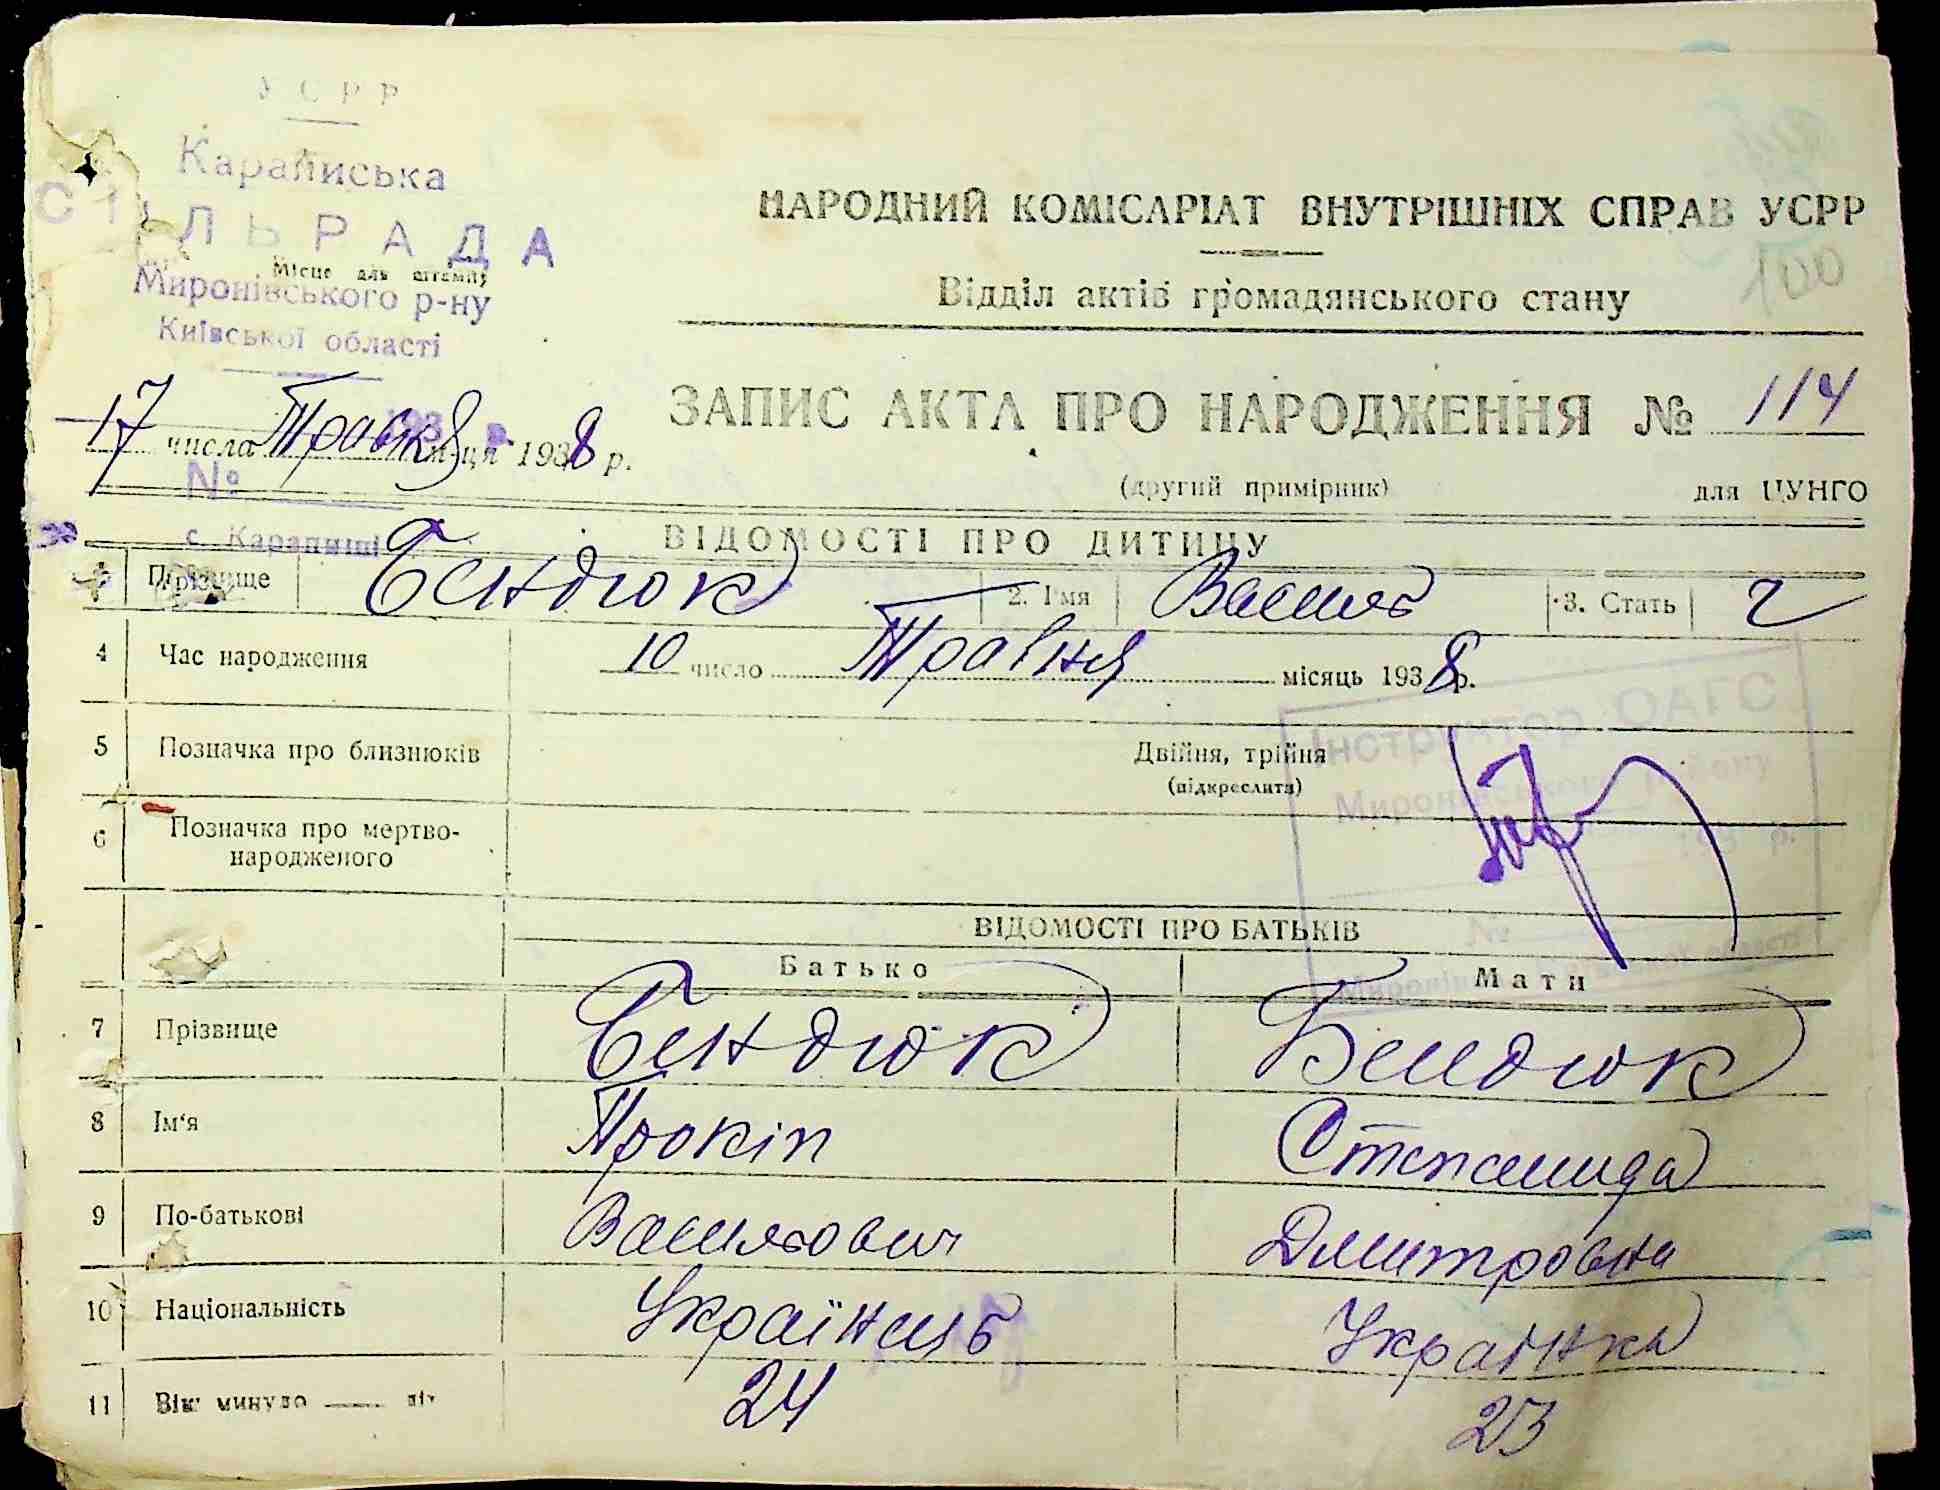 УСРР
Караписька
СІЛЬРАДА
Місце для штампу
Миронівського р-ну
Київської області
НАРОДНИЙ КОМІСАРІАТ ВНУТРІШНІХ СПРАВ УСРР
100
Відділ актів громадянського стану
ЗАПИС АКТА ПРО НАРОДЖЕННЯ № 114
17 числа Травня м-ця 1938 р.
193 р.
(другий примірник) для ЦУНГО
№
с. Карапиші
ВІДОМОСТІ ПРО ДИТИНУ
Прізвище Бендюк 2. Ім'я Василь 3. Стать ч
4 Час народження 10 число Травня місяць 1938 р.
Інструктор ОАГС
5 Позначка про близнюків Двійня, трійня
(підкреслити)
Миронівського району
6 Позначка про мертво-
народженого
193 р.
№
ВІДОМОСТІ ПРО БАТЬКІВ
Батько Мати
7 Прізвище Бендюк Бендюк
8 Ім'я Прокіп Степанида
9 По-батькові Васильович Дмитровна
10 Національність Українець Українка
11 Вік: минуло літ 24 23